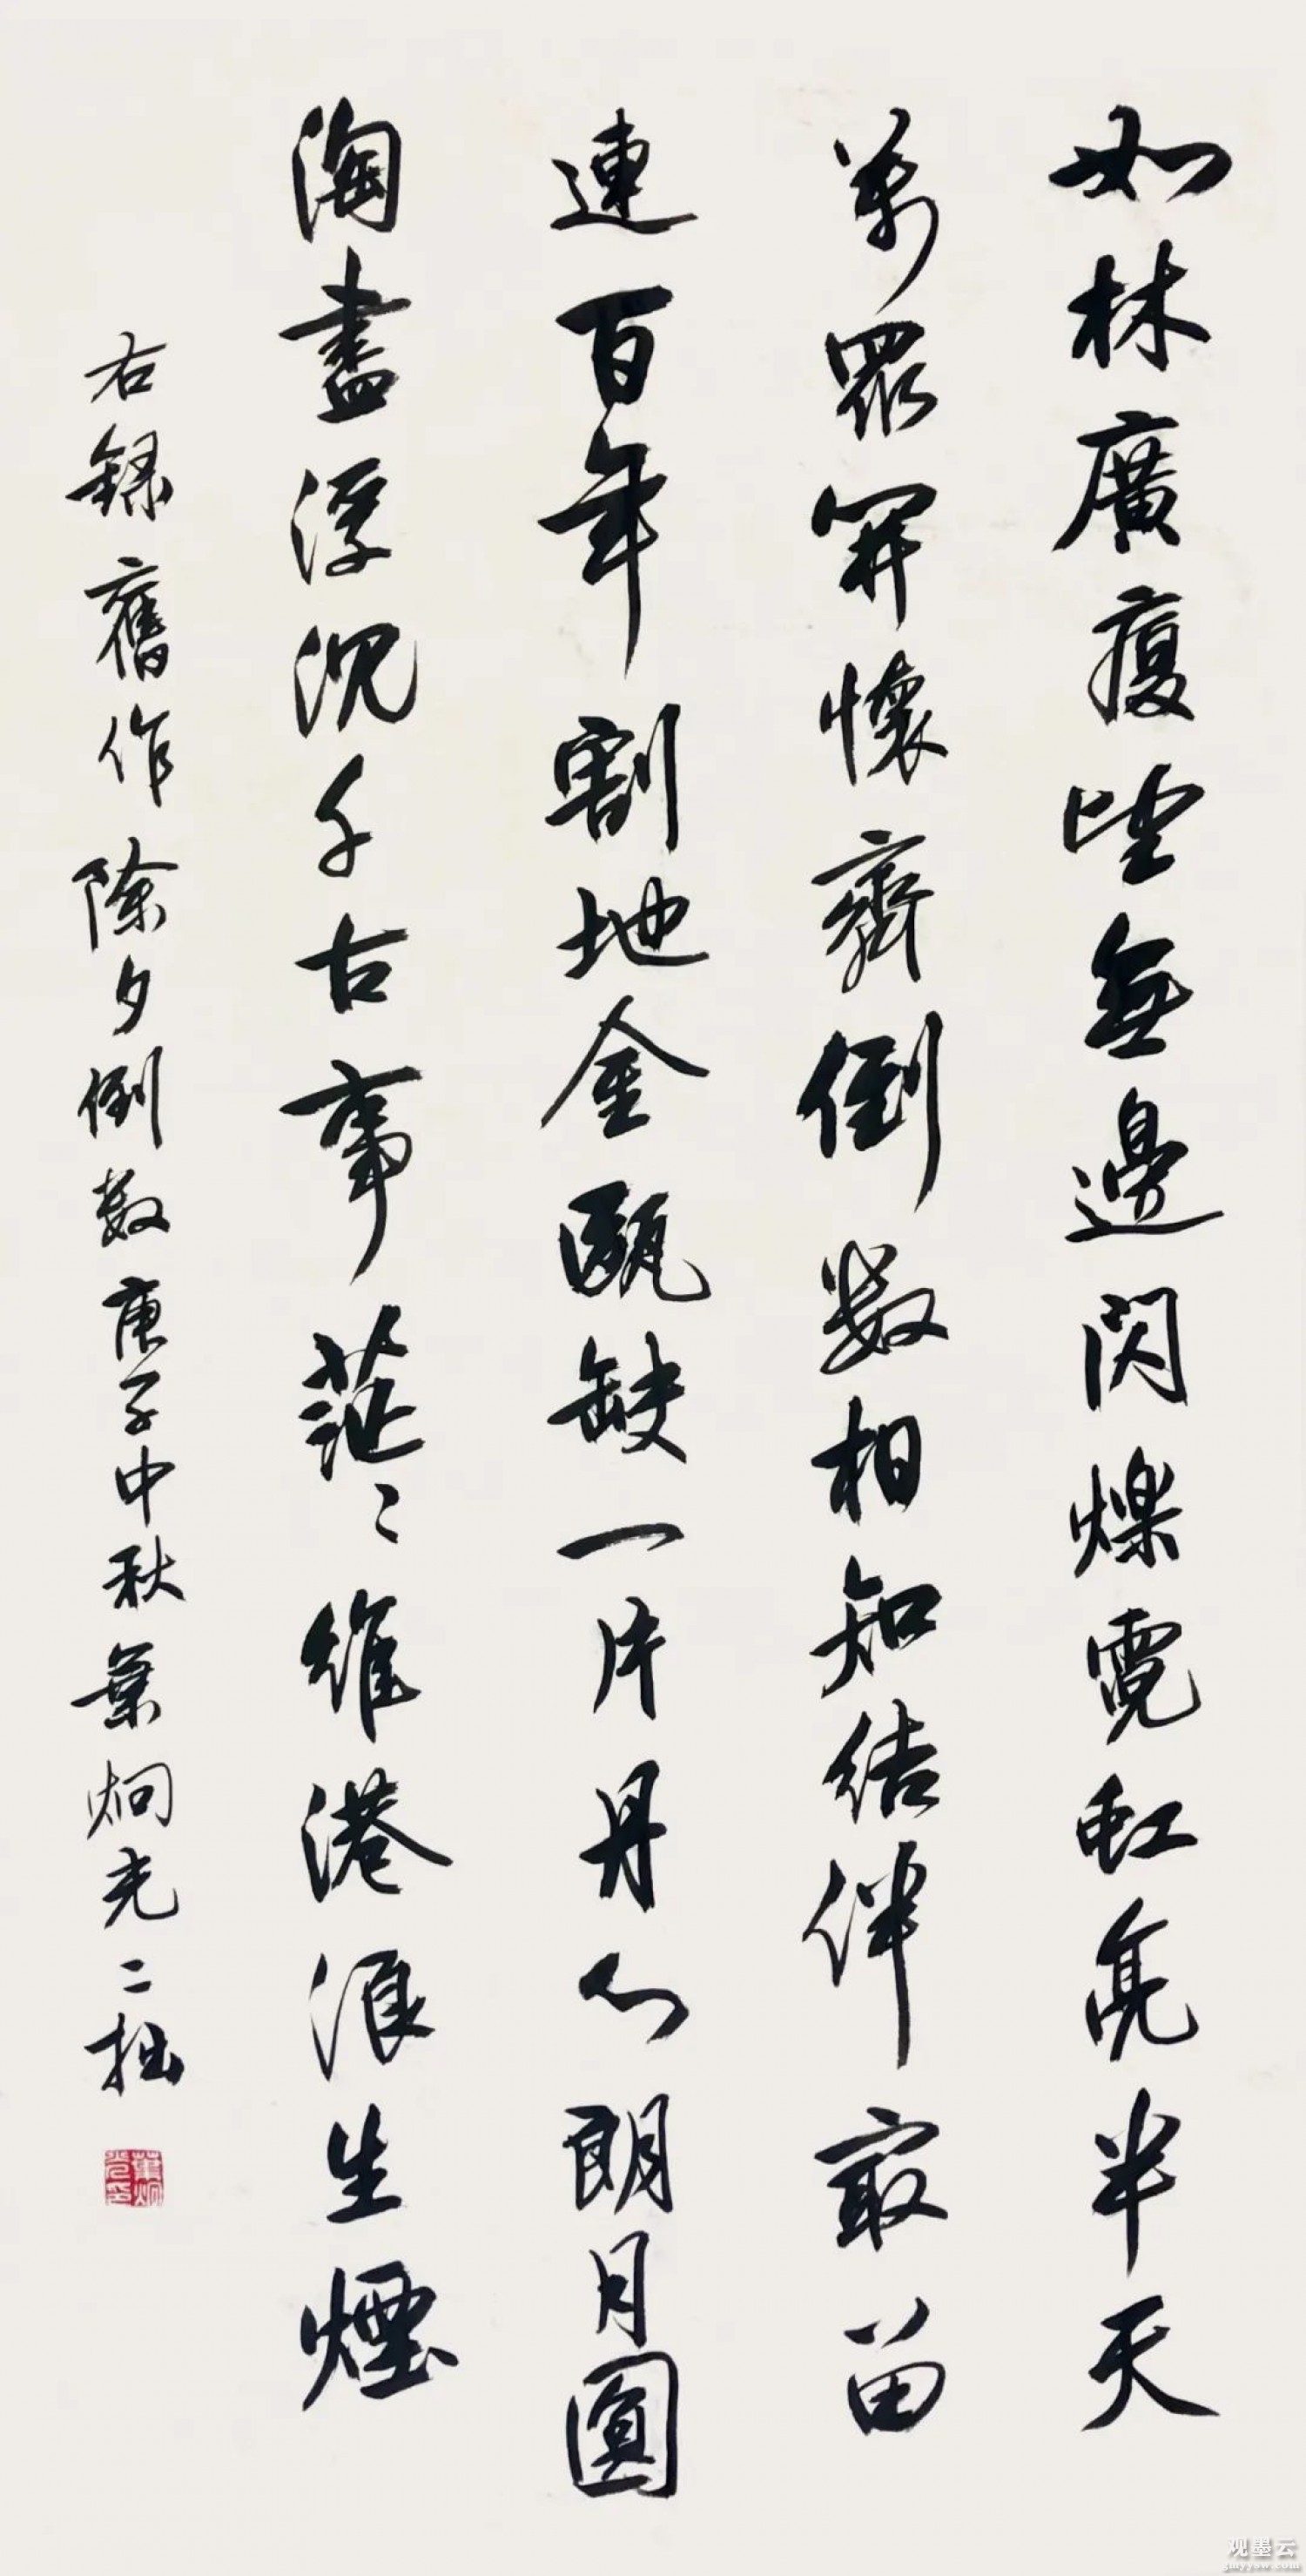 如林廣廈望無邊閃爍霓虹亮半天
萬眾開懷齊倒數相知結伴最留
連百年割地金甌缺一片丹心朗月圓
淘盡浮沉千古事茫〻維港浪生煙
右錄舊作除夕倒數庚子中秋葉炯光二拙
葉炯光印
观墨云